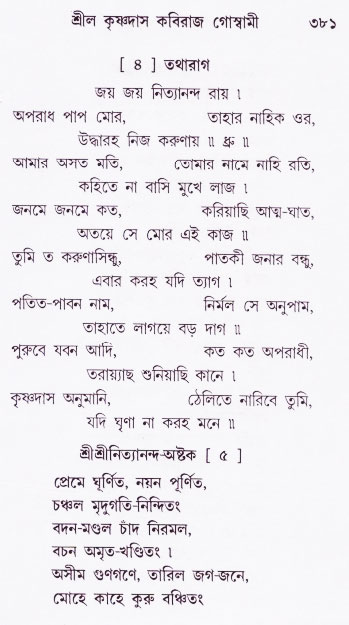 শ্রীল কৃষ্ণদাস কবিরাজ গোস্বামী ৩৮১
[ ৪ ] তথারাগ
জয় জয় নিত্যানন্দ রায় ।
অপরাধ পাপ মোর, তাহার নাহিক ওর,
উদ্ধারহ নিজ করুণায় ॥ ধ্রু ॥
আমার অসত মতি, তোমার নামে নাহি রতি,
কহিতে না বাসি মুখে লাজ ।
জনমে জনমে কত, করিয়াছি আত্ম-ঘাত,
অতয়ে সে মোর এই কাজ ॥
তুমি ত করুণাসিন্ধু, পাতকী জনার বন্ধু,
এবার করহ যদি ত্যাগ ।
পতিত-পাবন নাম, নির্মল সে অনুপাম,
তাহাতে লাগয়ে বড় দাগ ॥
পুরুবে যবন আদি, কত কত অপরাধী,
তরায়্যাছ শুনিয়াছি কানে ।
কৃষ্ণদাস অনুমানি, ঠেলিতে নারিবে তুমি,
যদি ঘৃণা না করহ মনে ॥
শ্রীশ্রীনিত্যানন্দ-অষ্টক [ ৫ ]
প্রেমে ঘূর্ণিত, নয়ন পূর্ণিত,
চঞ্চল মৃদুগতি-নিন্দিতং
বদন-মণ্ডল চাঁদ নিরমল,
বচন অমৃত-খণ্ডিতং ।
অসীম গুণগণে, তারিল জগ-জনে,
মোহে কাহে কুরু বঞ্চিতং